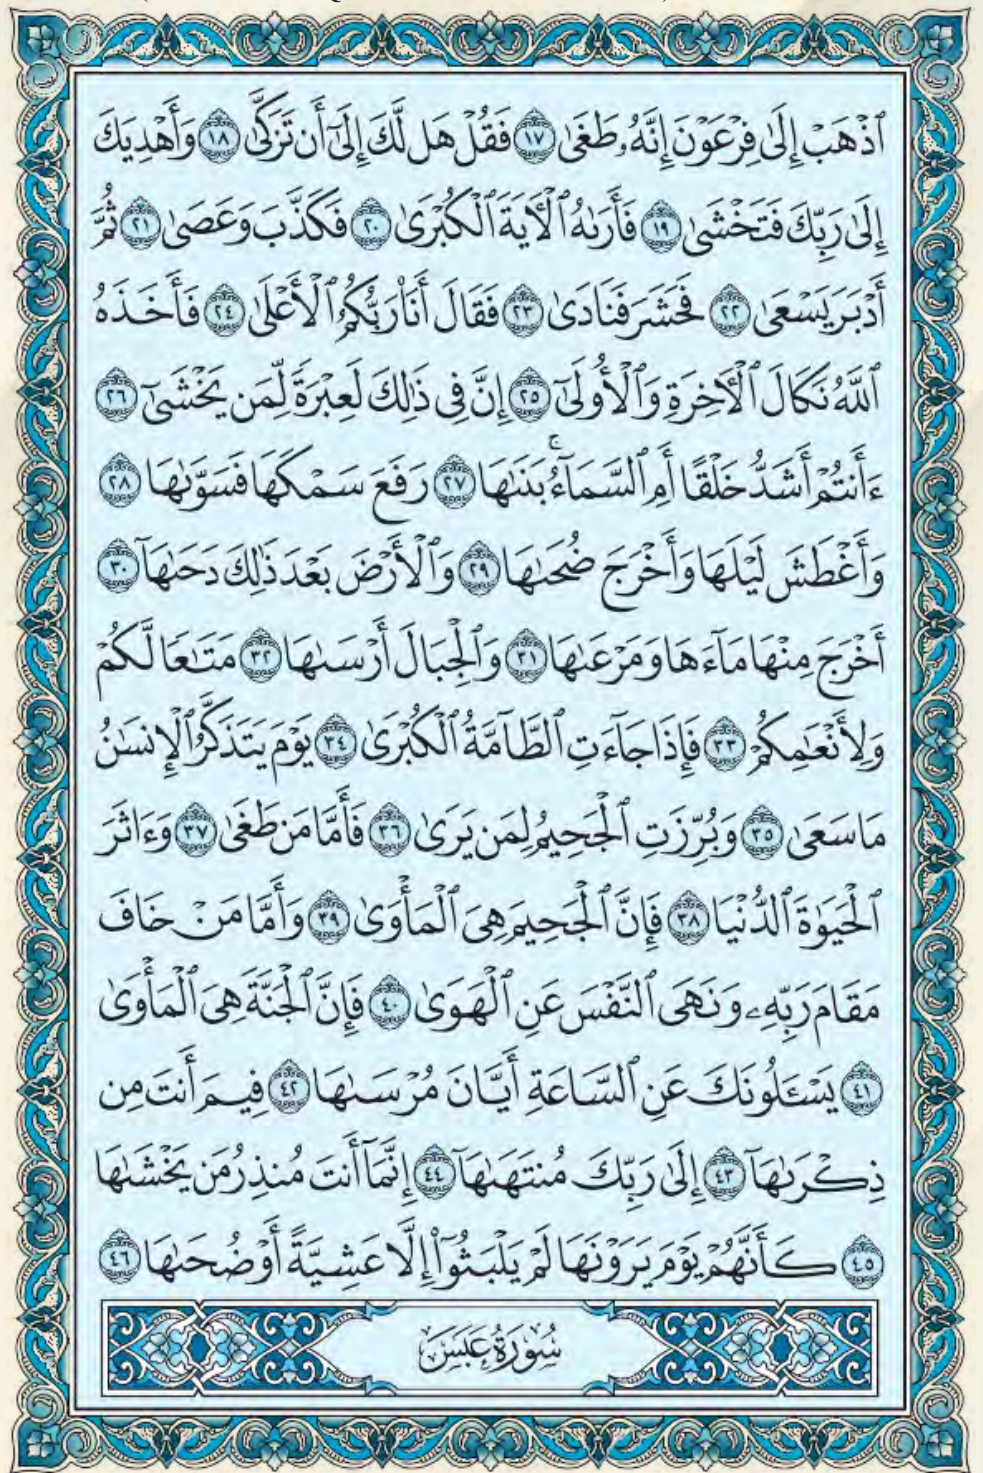 ٱذْهَبْ إِلَىٰ فِرْعَوْنَ إِنَّهُۥ طَغَىٰ ١٧ فَقُلْ هَل لَّكَ إِلَىٰٓ أَن تَزَكَّىٰ ١٨ وَأَهْدِيَكَ
إِلَىٰ رَبِّكَ فَتَخْشَىٰ ١٩ فَأَرَىٰهُ ٱلْءَايَةَ ٱلْكُبْرَىٰ ٢٠ فَكَذَّبَ وَعَصَىٰ ٢١ ثُمَّ
أَدْبَرَ يَسْعَىٰ ٢٢ فَحَشَرَ فَنَادَىٰ ٢٣ فَقَالَ أَنَا۠ رَبُّكُمُ ٱلْأَعْلَىٰ ٢٤ فَأَخَذَهُ
ٱللَّهُ نَكَالَ ٱلْءَاخِرَةِ وَٱلْأُولَىٰٓ ٢٥ إِنَّ فِى ذَٰلِكَ لَعِبْرَةً لِّمَن يَخْشَىٰٓ ٢٦
ءَأَنتُمْ أَشَدُّ خَلْقًا أَمِ ٱلسَّمَآءُ ۚ بَنَىٰهَا ٢٧ رَفَعَ سَمْكَهَا فَسَوَّىٰهَا ٢٨
وَأَغْطَشَ لَيْلَهَا وَأَخْرَجَ ضُحَىٰهَا ٢٩ وَٱلْأَرْضَ بَعْدَ ذَٰلِكَ دَحَىٰهَآ ٣٠
أَخْرَجَ مِنْهَا مَآءَهَا وَمَرْعَىٰهَا ٣١ وَٱلْجِبَالَ أَرْسَىٰهَا ٣٢ مَتَٰعًا لَّكُمْ
وَلِأَنْعَٰمِكُمْ ٣٣ فَإِذَا جَآءَتِ ٱلطَّآمَّةُ ٱلْكُبْرَىٰ ٣٤ يَوْمَ يَتَذَكَّرُ ٱلْإِنسَٰنُ
مَا سَعَىٰ ٣٥ وَبُرِّزَتِ ٱلْجَحِيمُ لِمَن يَرَىٰ ٣٦ فَأَمَّا مَن طَغَىٰ ٣٧ وَءَاثَرَ
ٱلْحَيَوٰةَ ٱلدُّنْيَا ٣٨ فَإِنَّ ٱلْجَحِيمَ هِىَ ٱلْمَأْوَىٰ ٣٩ وَأَمَّا مَنْ خَافَ
مَقَامَ رَبِّهِۦ وَنَهَى ٱلنَّفْسَ عَنِ ٱلْهَوَىٰ ٤٠ فَإِنَّ ٱلْجَنَّةَ هِىَ ٱلْمَأْوَىٰ
٤١ يَسْـَٔلُونَكَ عَنِ ٱلسَّاعَةِ أَيَّانَ مُرْسَىٰهَا ٤٢ فِيمَ أَنتَ مِن
ذِكْرَىٰهَآ ٤٣ إِلَىٰ رَبِّكَ مُنتَهَىٰهَآ ٤٤ إِنَّمَآ أَنتَ مُنذِرُ مَن يَخْشَىٰهَا
٤٥ كَأَنَّهُمْ يَوْمَ يَرَوْنَهَا لَمْ يَلْبَثُوٓا۟ إِلَّا عَشِيَّةً أَوْ ضُحَىٰهَا ٤٦
سُورَةُ عَبَسَ